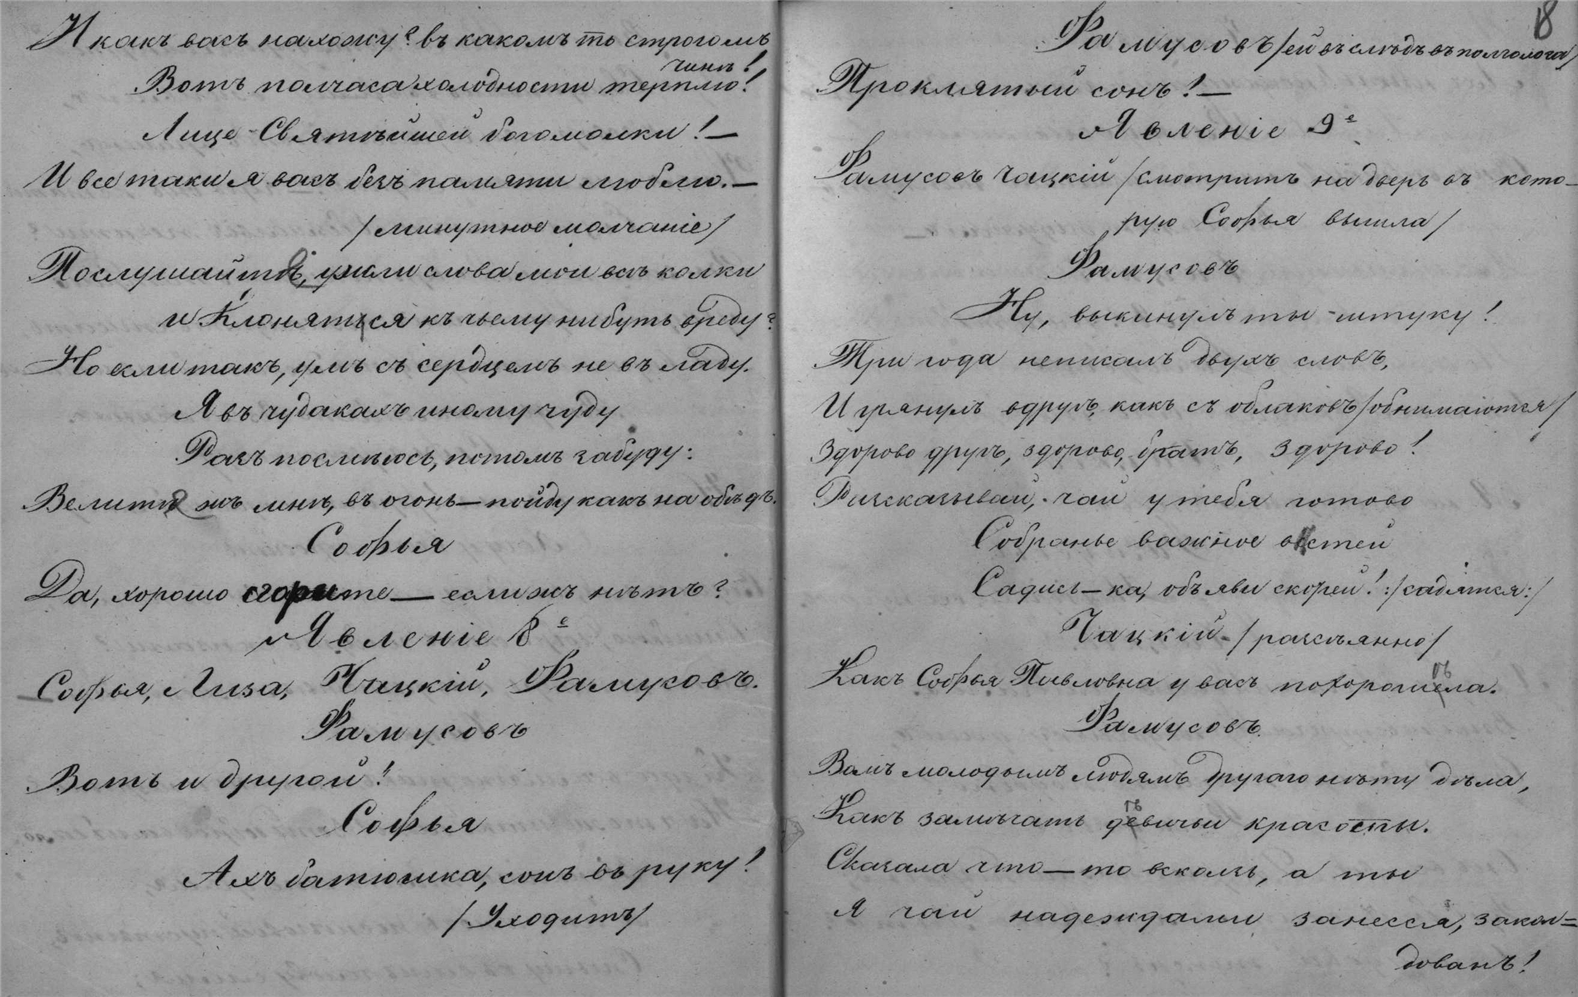 И какъ васъ нахожу? въ какомъ то строгомъ
чинѣ!
Вотъ полчаса холодности терплю!
Лице Святѣйшей богомолки! —
И все таки я васъ безъ памяти люблю. —
/минутное молчаніе/
Послушайте, ужли слова мои всѣ колки
и Клонятся къ чьему нибуть вреду?
Но если такъ, умъ съ сердцемъ не въ ладу.
Я въ чудакахъ иному чуду
Разъ посмѣюсь, потомъ забуду:
Велите жъ мнѣ, въ огонь — пойду какъ на обѣдъ.
Софья
Да, хорошо сгорите — еслижъ нѣтъ?
Явленіе 8е
Софья, Лиза, Чацкій, Фамусовъ.
Фамусовъ
Вотъ и другой!
Софья
Ахъ батюшка, сонъ въ руку!
/Уходитъ/
18
Фамусовъ /ей въ слѣдъ въ полголоса/
Проклятый сонъ! —
Явленіе 9е
Фамусовъ Чацкій /смотритъ на дверь въ кото-
рую Софья вышла/
Фамусовъ
Ну, выкинулъ ты штуку!
Три года неписалъ двухъ словъ,
И грянулъ вдругъ, какъ съ облаковъ /обнимаются/
Здорово другъ, здорово, братъ, здорово!
Разсказывай, чай у тебя готово
Собранье важное вѣстей
Садись — ка, объяви скорей! :/садятся:/
Чацкій /разсѣянно/
Какъ Софья Павловна у васъ похорошѣла.
Фамусовъ
Вамъ молодымъ людямъ другаго нѣту дѣла,
Какъ замѣчать дѣвичьи красоты.
Сказала что — то вскользь, а ты
Я чай надеждами занесся, закол=
дованъ!